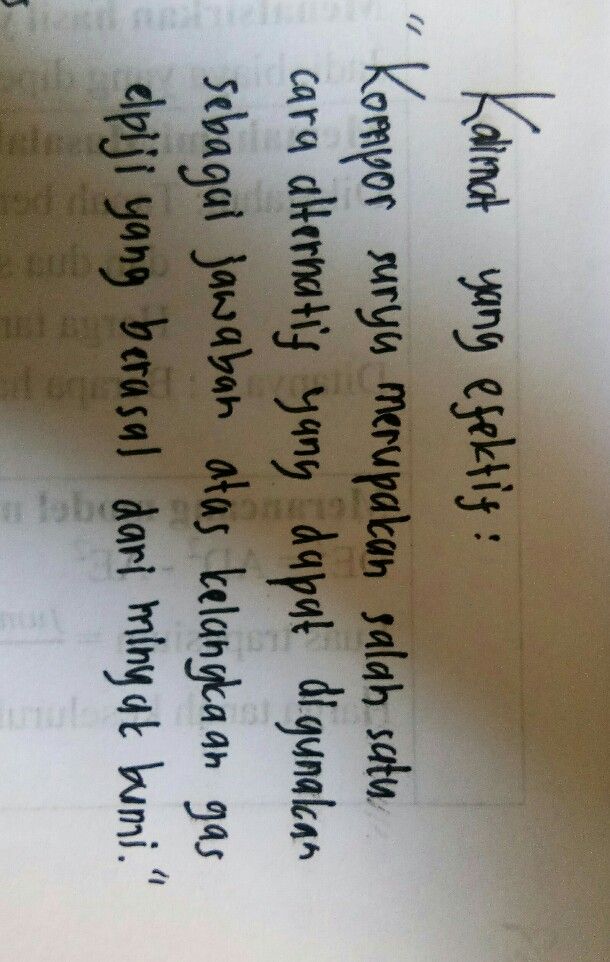 Kalimat yang efektif :
"Kompor surya merupakan salah satu
cara alternatif yang dapat digunakan
sebagai jawaban atas kelangkaan gas
elpiji yang berasal dari minyak bumi."